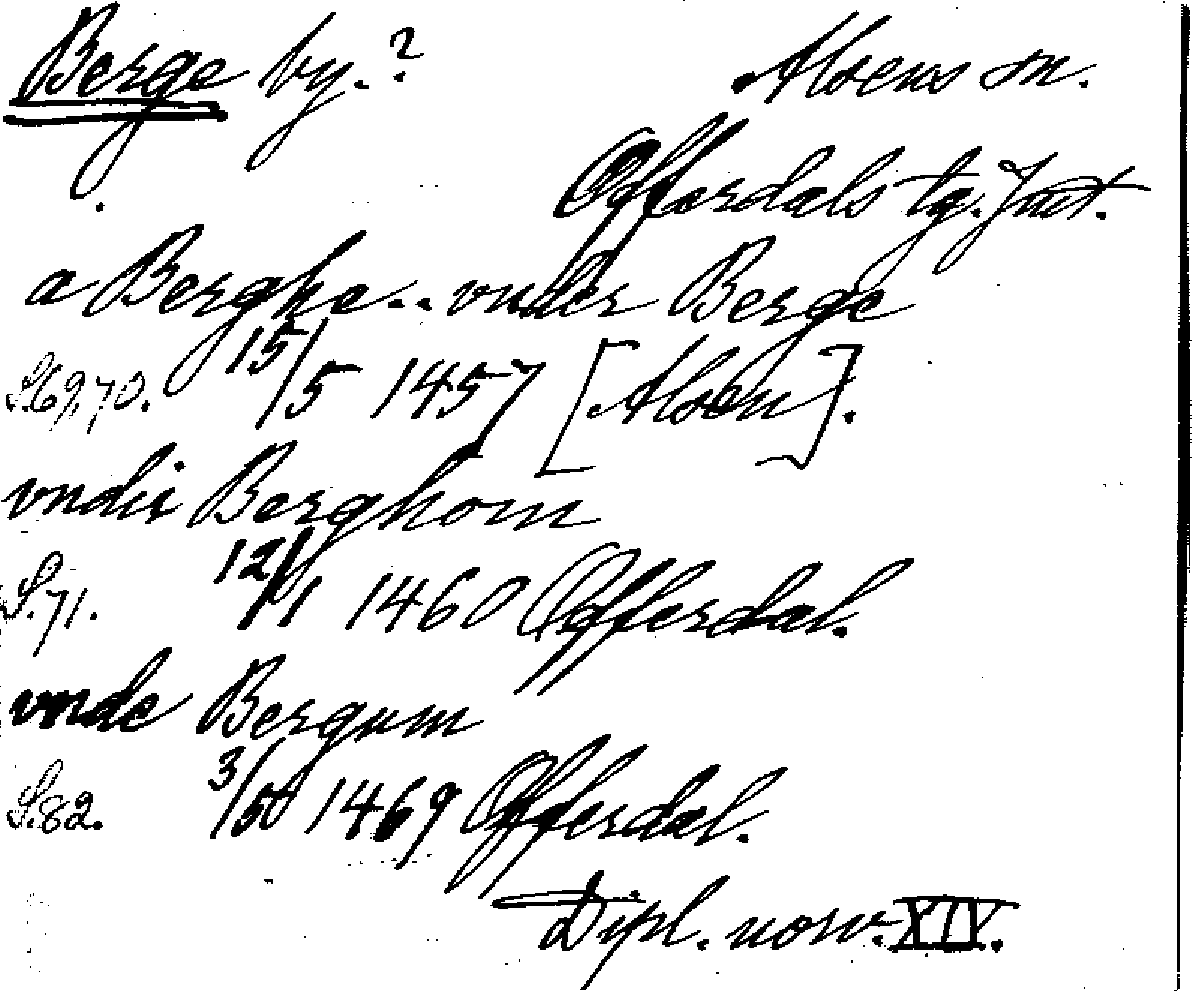 Berge by.?
Alsens sn.
Offerdals tg. Jmt.
a Berghe.. vnder Berge
S.69,70. 15/5 1457 [Alsen].
vndir Berghom
S.71. 12/1 1460 Offerdal.
vnde Bergum
S.82. 3/10 1469 Offerdal.
Dipl. norv. XIV.